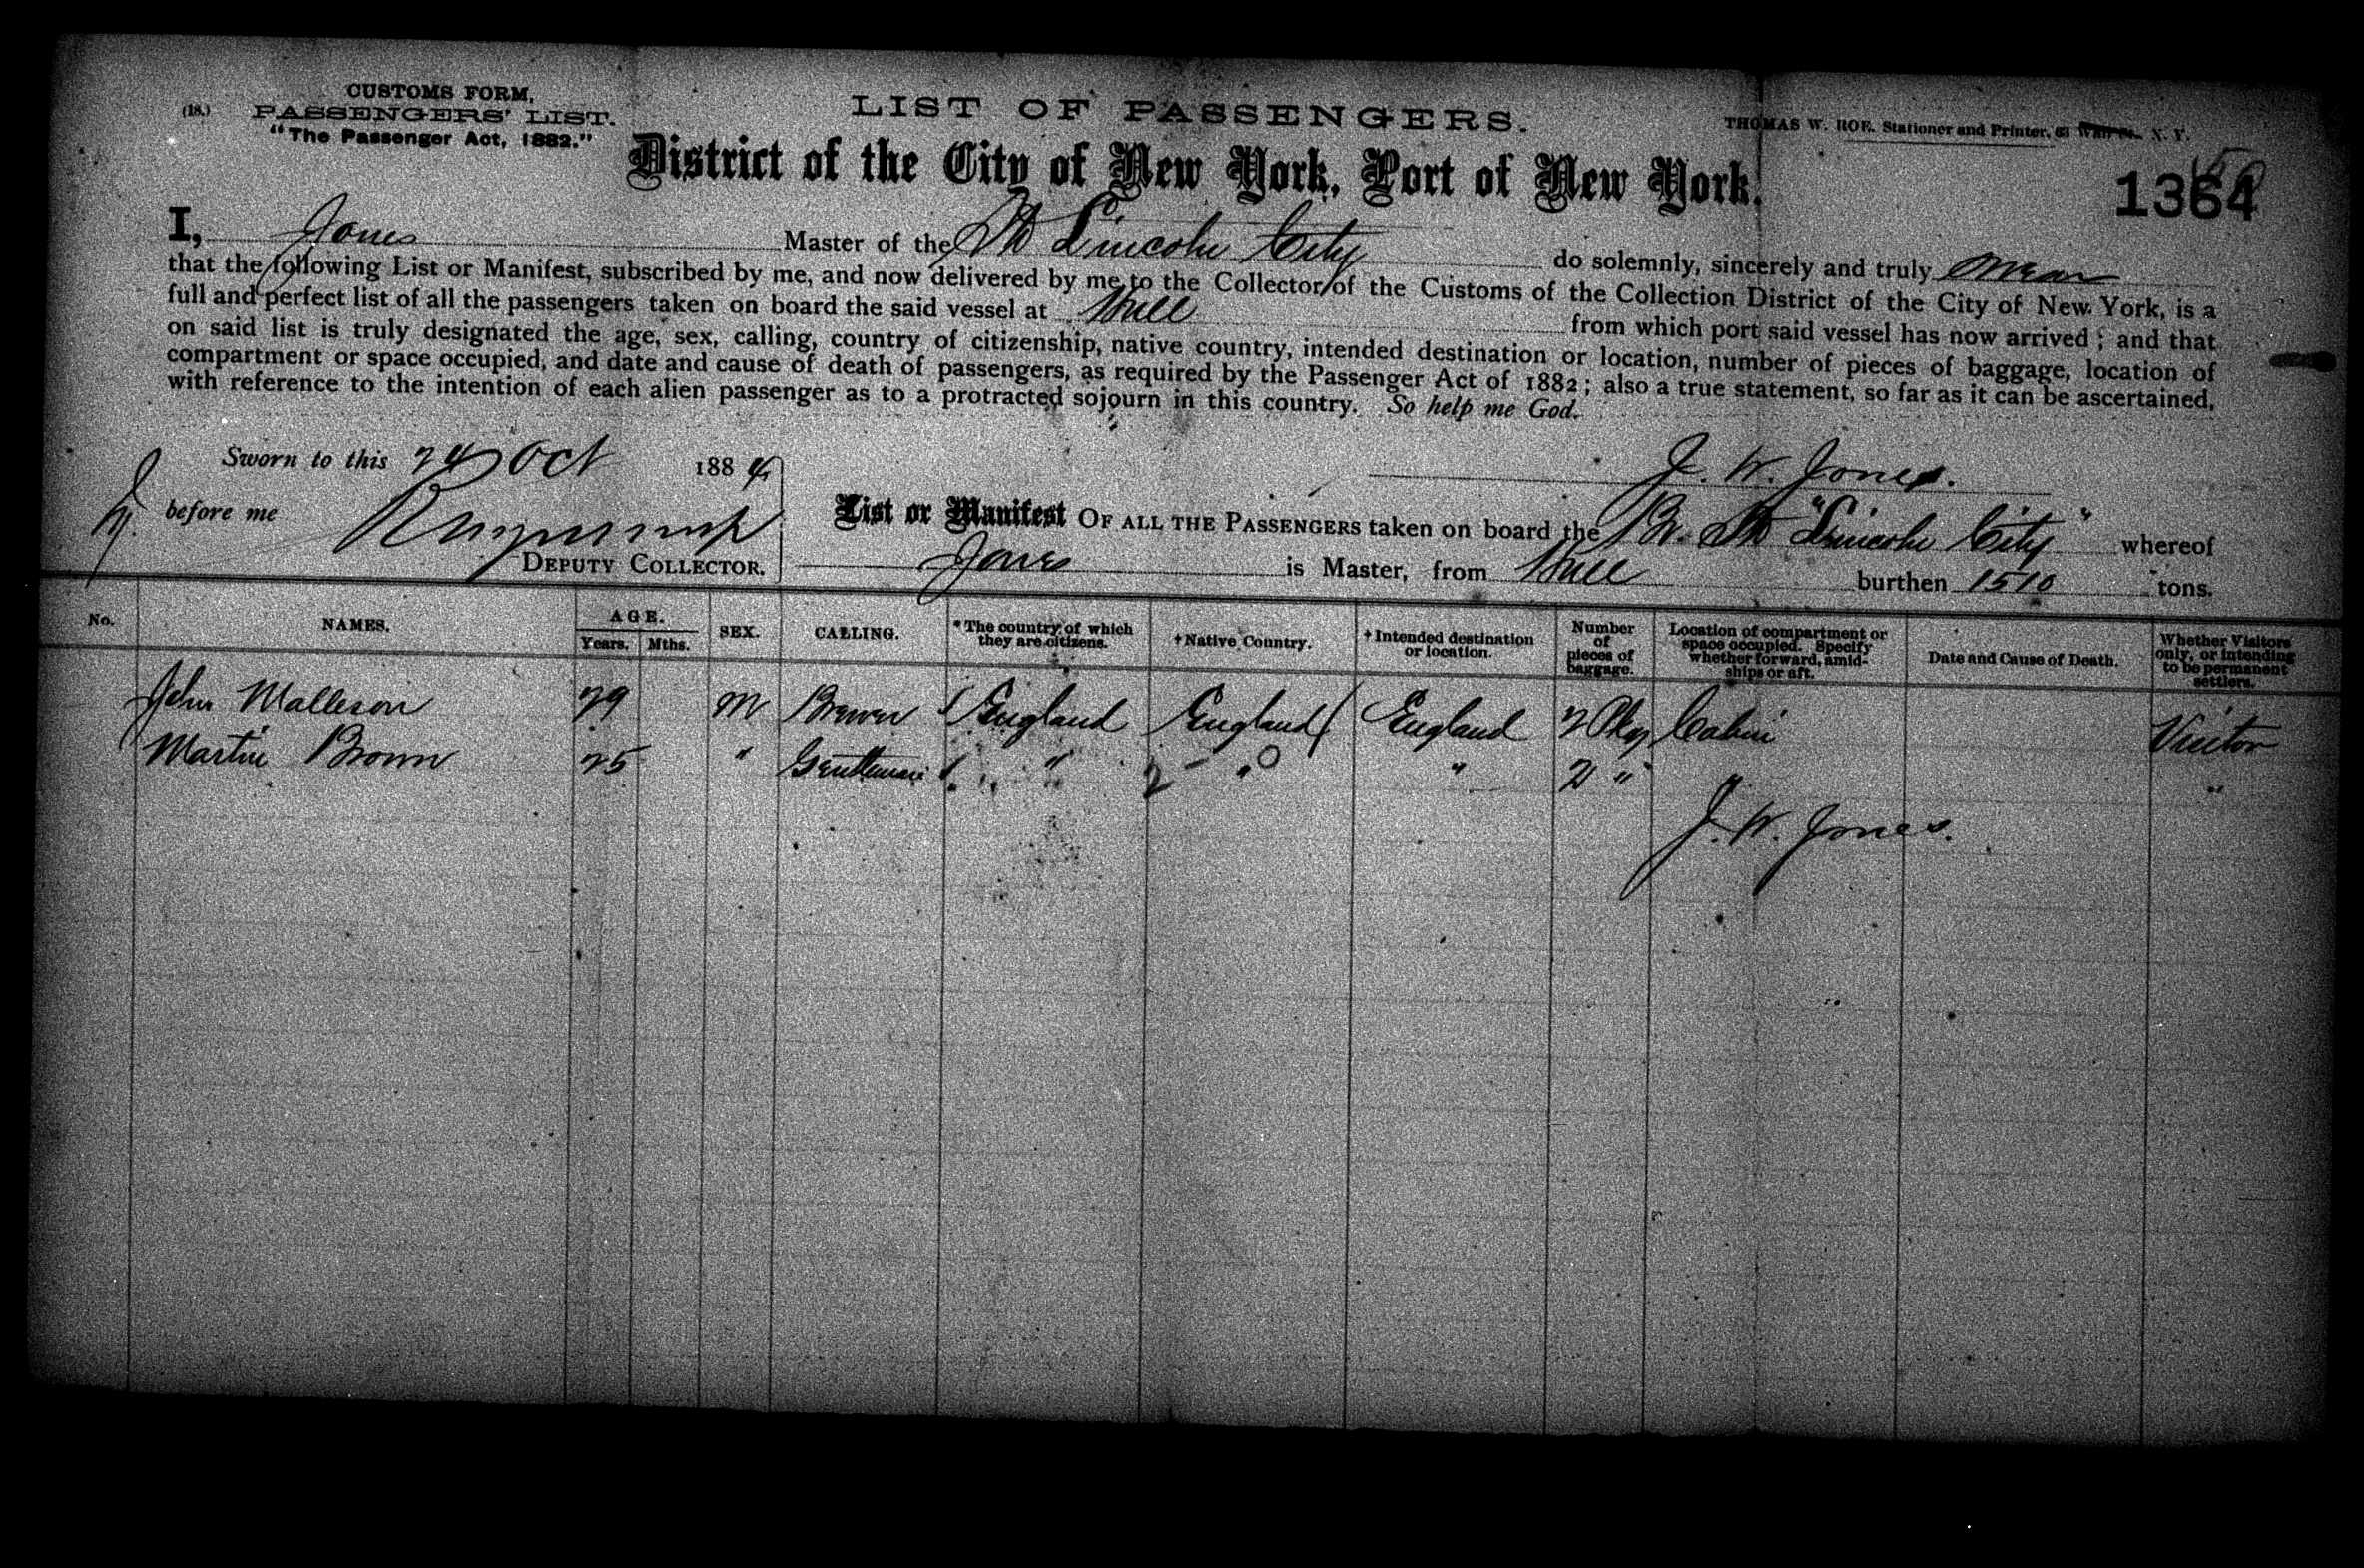 CUSTOMS FORM,
(18.) PASSENGERS' LIST.
"The Passenger Act, 1882."
LIST OF PASSENGERS.
THOMAS W. ROE. Stationer and Printer, 61 Wall St. N. Y.
District of the City of New York, Port of New York.
1364
I, Jones Master of the Lincoln City do solemnly, sincerely and truly swear
that the following List or Manifest, subscribed by me, and now delivered by me to the Collector of the Customs of the Collection District of the City of New York, is a
full and perfect list of all the passengers taken on board the said vessel at Hull from which port said vessel has now arrived; and that
on said list is truly designated the age, sex, calling, country of citizenship, native country, intended destination or location, number of pieces of baggage, location of
compartment or space occupied, and date and cause of death of passengers, as required by the Passenger Act of 1882; also a true statement, so far as it can be ascertained,
with reference to the intention of each alien passenger as to a protracted sojourn in this country. So help me God.
Sworn to this 24 Oct 1884
J. W. Jones.
before me
DEPUTY COLLECTOR.
List or Manifest OF ALL THE PASSENGERS taken on board the Br. "Lincoln City" whereof
Jones is Master, from Hull burthen 1510 tons.
No. NAMES. AGE. Years. Mths. SEX. CALLING. *The country of which they are citizens. †Native Country. †Intended destination or location. Number of pieces of baggage. Location of compartment or space occupied. Specify whether forward, amidships or aft. Date and Cause of Death. Whether Visitors only, or intending to be permanent settlers.
John Malleson 29 M Brewer England England England 2 Pkgs Cabin Visitor
Martin Brown 25 " Gentleman " " " 2 " "
J. W. Jones.